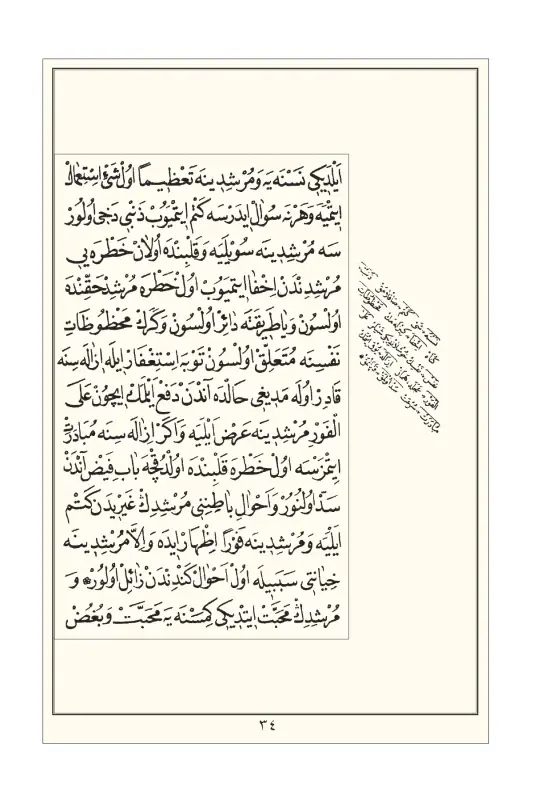 اَیلَدِیکی نَسْنَه یَه وَ مُرْشِدِینَه تَعْظِیمًا اُولْ شَیْ اِسْتِعْمَالْ
اِیتْمِیَه وَ هَرْ نَه سُؤَالْ اِیدَرْسَه کَتْم اِیتْمِیُوبْ ذَنْبِی دَخِی اُولُورْ
سَه مُرْشِدِینَه سُویْلِیَه وَ قَلْبِنْدَه اُولَانْ خَطْرَه یِی
مُرْشِدِنْدَنْ اِخْفَا اِیتْمِیُوبْ اُولْ خَطْرَه مُرْشِدْ حَقِّنْدَه
اُولْسُونْ وَ یَا طَرِیقَتَه دَائِرْ اُولْسُونْ وَ کَرَكْ مَحْظُوظَاتِ
نَفْسِینَه مُتَعَلِّقْ اُولْسُونْ تَوْبَه اِسْتِغْفَارْ اِیلَه اِزَالَه سِنَه
قَادِرْ اُولَه مَدِیغِی حَالْدَه آنْدَنْ دَفْعْ اِیلَمَكْ اِیچُونْ عَلَی
الْفَوْرِ مُرْشِدِینَه عَرْضْ اَیْلِیَه وَ اَکَرْ اِزَالَه سِنَه مُبَادَرَتْ
اِیتْمَزْسَه اُولْ خَطْرَه قَلْبِنْدَه اُولْدُقْچَه بَابِ فَیْضْ آنْدَنْ
سَدّ اُولُنُورْ وَ اَحْوَالِ بَاطِنِنِی مُرْشِدِكْ غَیْرِیدَنْ کَتْم
اَیلِیَه وَ مُرْشِدِینَه فَوْرًا اِظْهَارْ اِیدَه وَ اِلَّا مُرْشِدِینَه
خِیَانَتِی سَبَبِیلَه اُولْ اَحْوَالْ کَنْدِنْدَنْ زَائِلْ اُولُورْ وَ
مُرْشِدِكْ مَحَبَّتْ اِیتْدِیکِی کِمْسَنَه یَه مَحَبَّتْ وَ بُغْضْ
٣٤